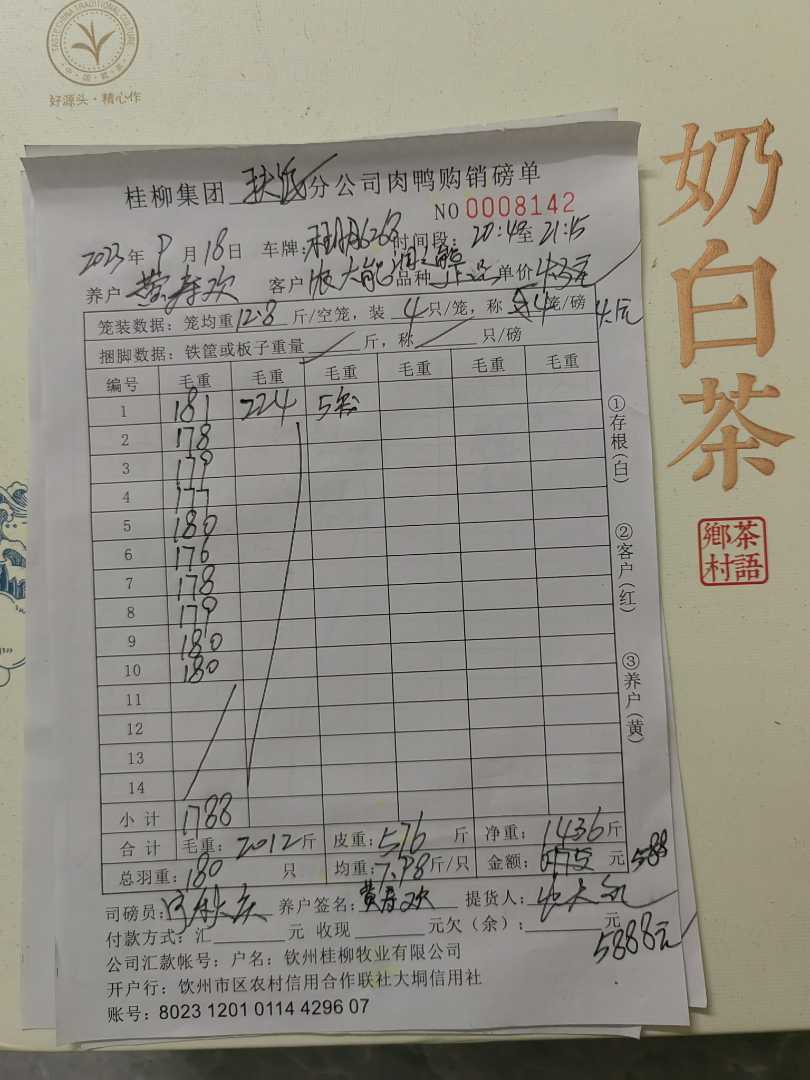 TASTE CHINA TRADITIONAL CULTURE
好源头·精心作
奶白茶
茶語
鄉村
桂柳集团 分公司肉鸭购销磅单
NO 0008142
2023年 8月18日 车牌: 6268 时间段: 20:49至21:15
养户 黄寿欢 客户 张大能 品种 正品 单价 4.3元
笼装数据: 笼均重12.8斤/空笼, 装 4只/笼, 称 4笼/磅
4.1元
捆脚数据: 铁筐或板子重量 斤, 称 只/磅
编号 毛重 毛重 毛重 毛重 毛重 毛重
1 181 224 5笼
2 178
3 179
4 177
5 180
6 176
7 178
8 179
9 180
10 180
11
12
13
14
小计 1788
合计 毛重: 2012斤 皮重: 576斤 净重: 1436斤
总羽重: 180只 均重: 7.98斤/只 金额: 元 588
司磅员: 养户签名: 黄寿欢 提货人:
付款方式: 汇 元 收现 元欠(余): 元
5888元
公司汇款帐号: 户名: 钦州桂柳牧业有限公司
开户行: 钦州市区农村信用合作联社大垌信用社
账号: 8023 1201 0114 4296 07
①存根(白)
②客户(红)
③养户(黄)